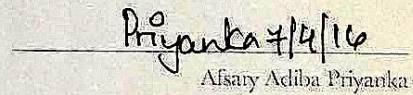 Priyanka 7/4/16
Afsary Adiba Priyanka